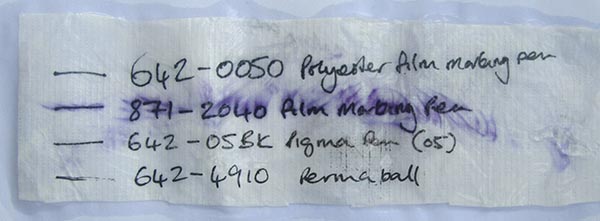 642-0050 Polyester film marking pen
871-2040 film marking Pen
642-05BK Pigma Pen (05)
642-4910 Permaball